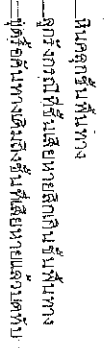 หินคลุกชั้นพื้นทาง
ลูกรังกรณีที่ชั้นเสียหายลึกเกินชั้นพื้นทาง
ขุดรื้อคันทางเดิมถึงชั้นที่เสียหายแล้วบดทับ